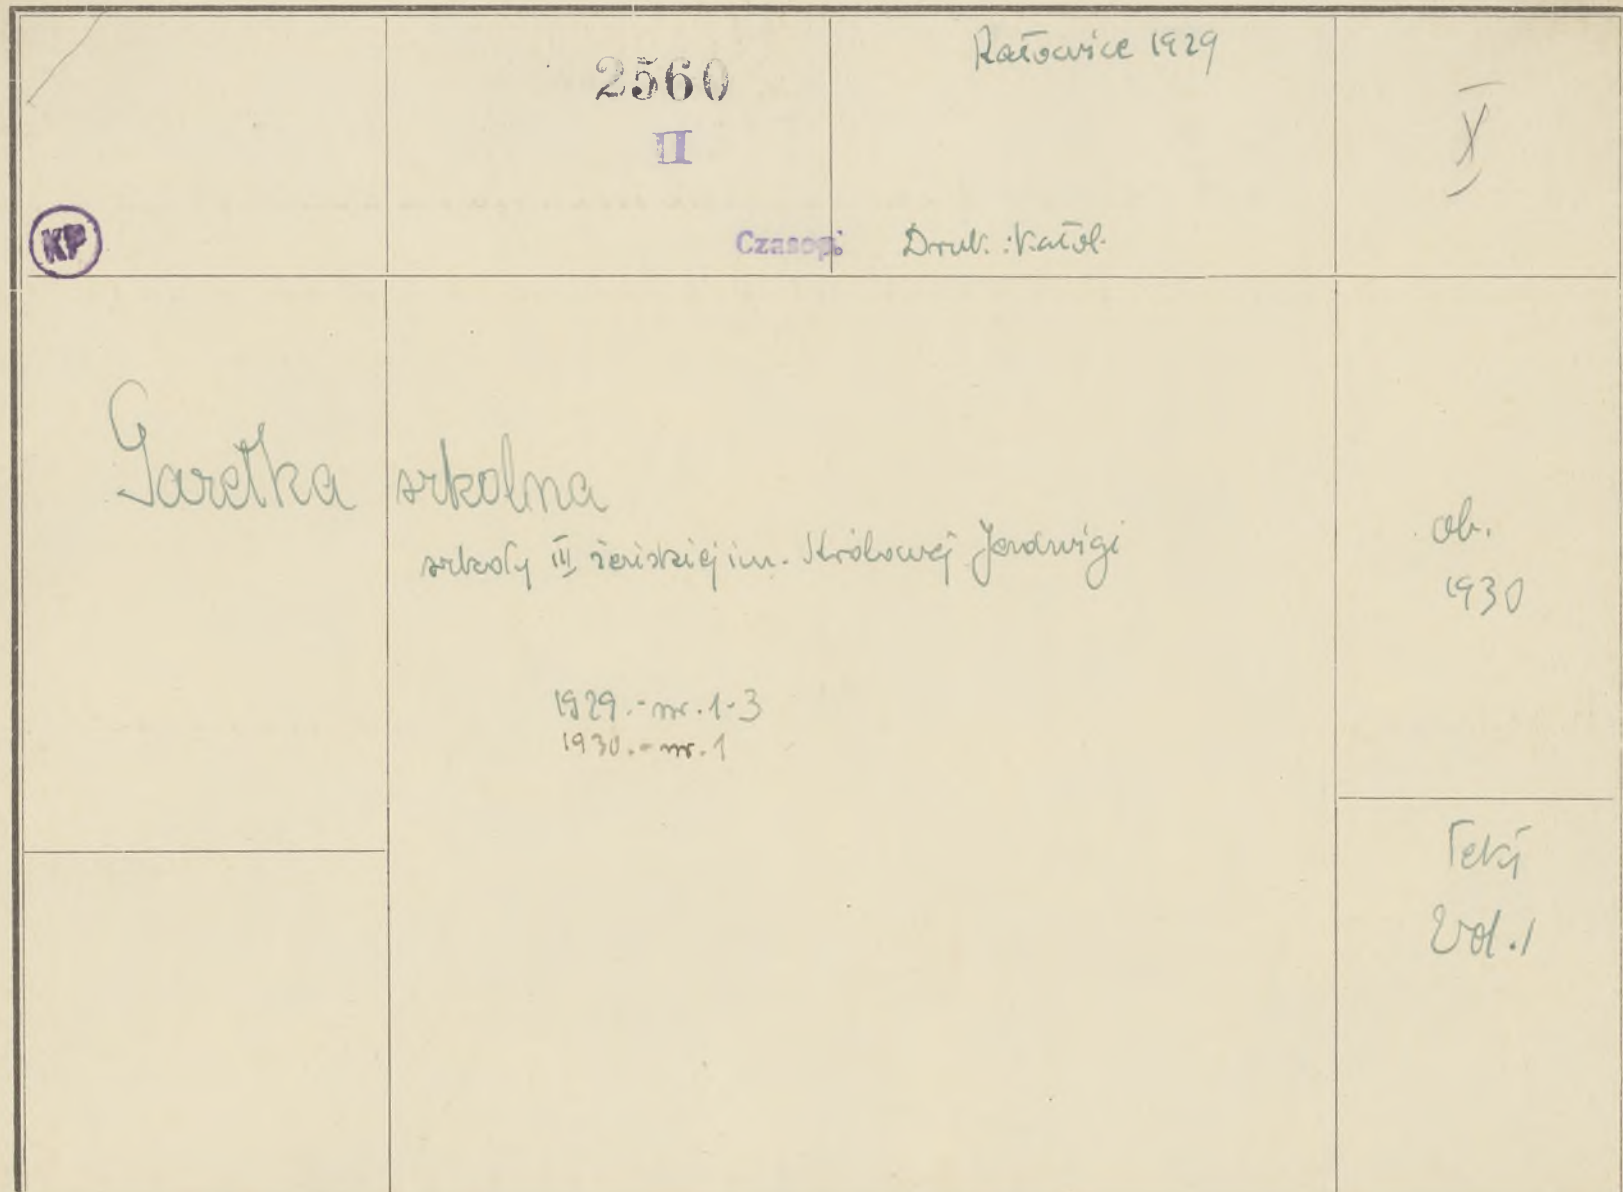 2560
II
Katowice 1929
X
KP
Czasop.
Druk. : Katol.
Gazetka szkolna
szkoły III żeńskiej im. Królowej Jadwigi
ob.
1930
1929.-nr.1-3
1930.-nr.1
Teki
Vol.1